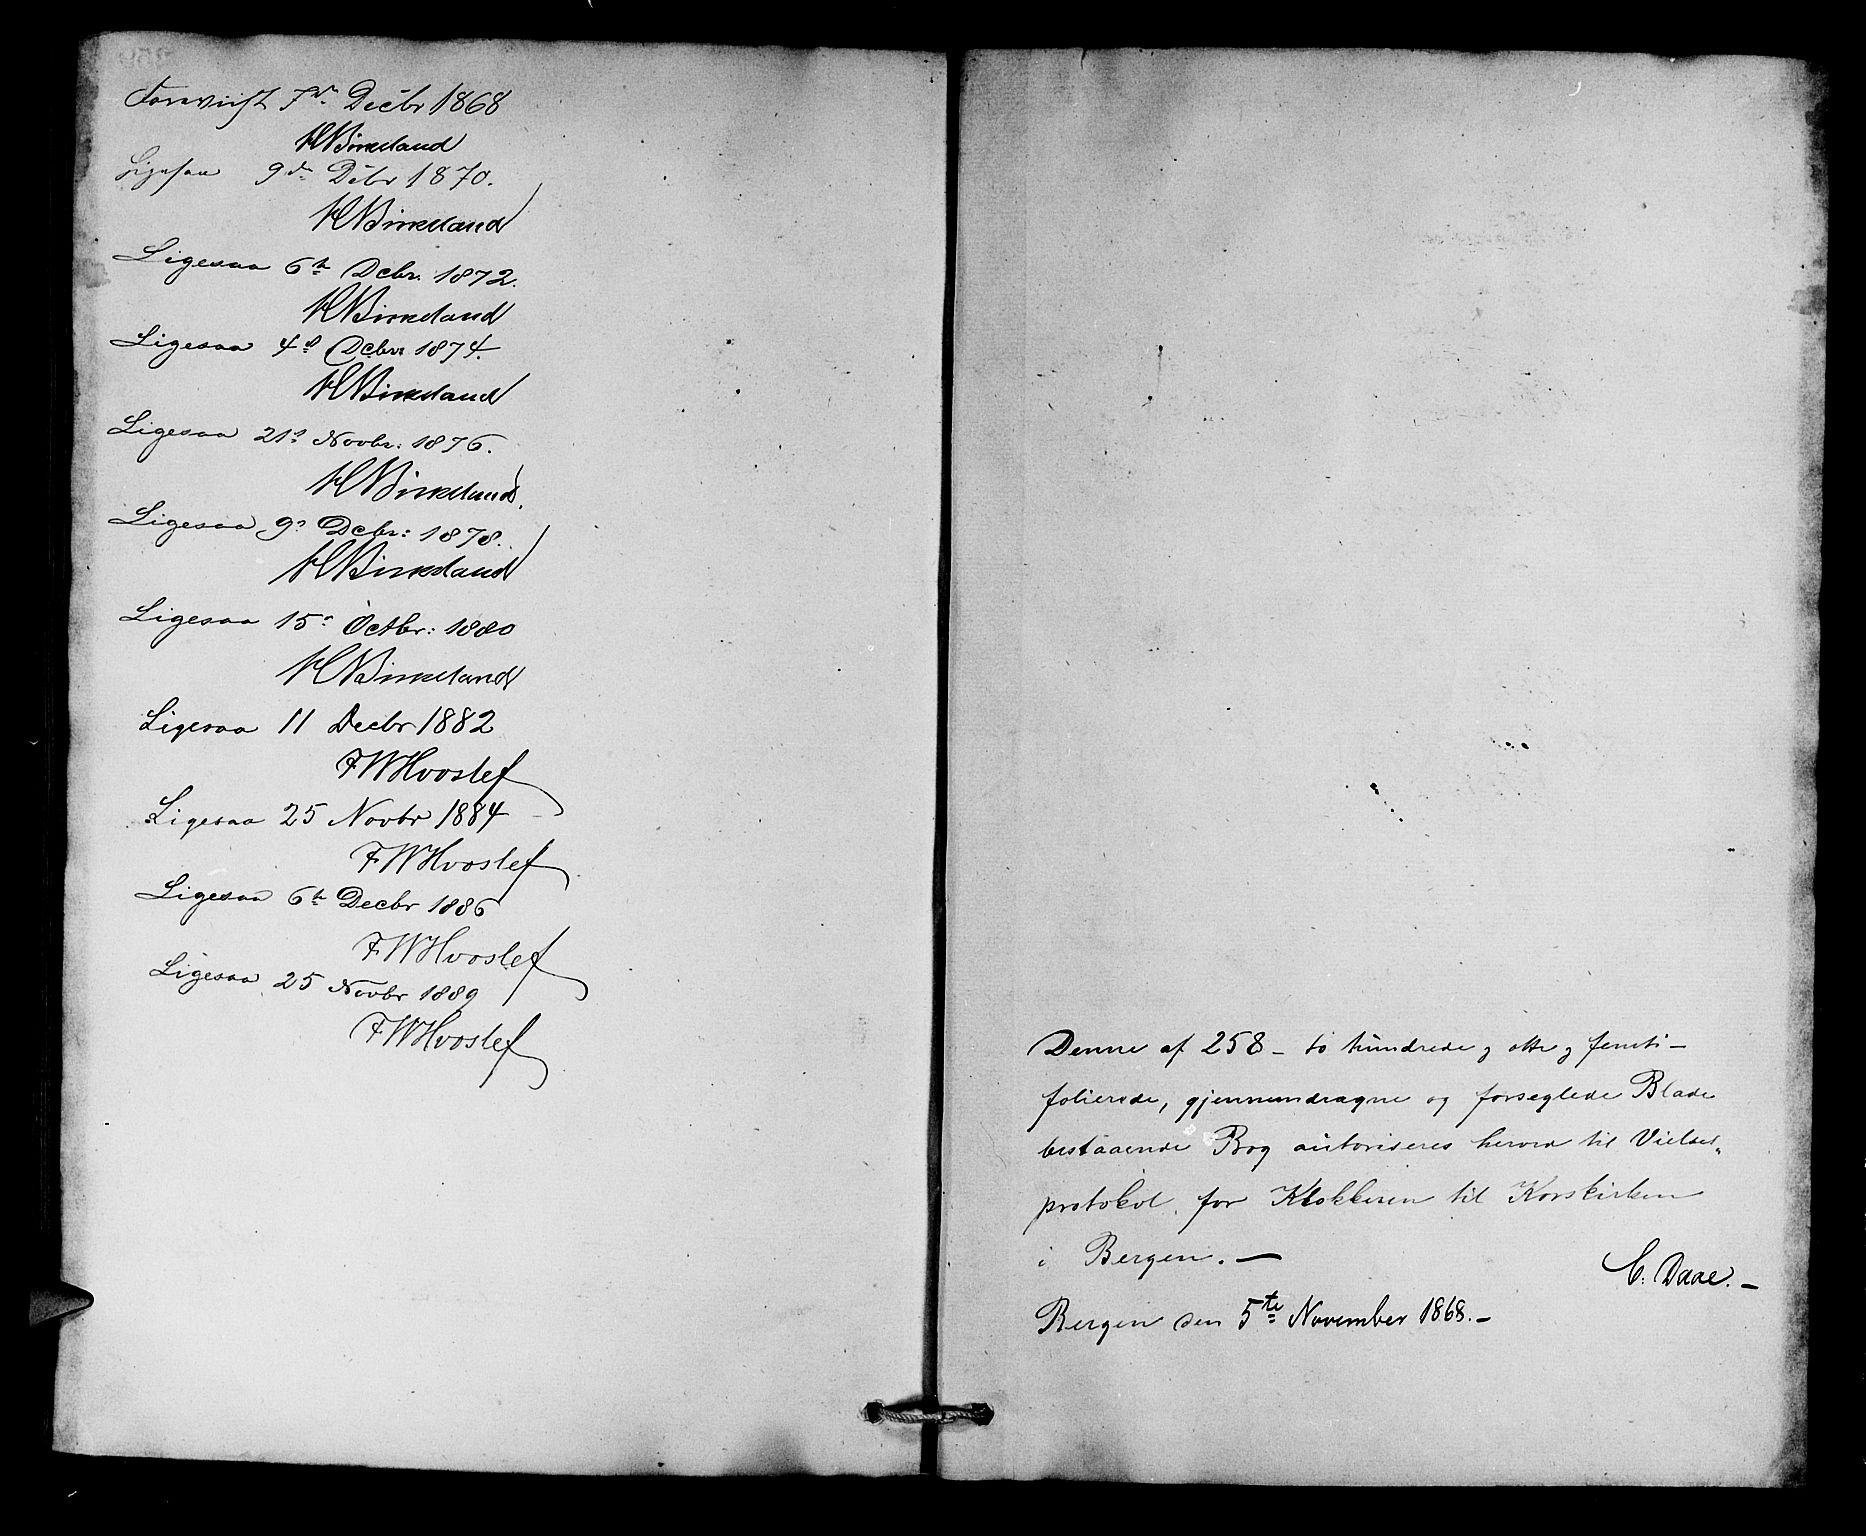 Foreviist 7de Decbr 1868
HNBirkeland
Ligesaa 9de Dcbr 1870.
HNBirkeland
Ligesaa 6te Dcbr. 1872.
HNBirkeland
Ligesaa 4de Dcbr. 1874.
HNBirkeland
Ligesaa 21s Novbr: 1876.
HNBirkeland.
Ligesaa 9s Dcbr: 1878.
HNBirkeland
Ligesaa 15s Octbr: 1880
HNBirkeland
Ligesaa 11 Decbr 1882
FWHvoslef
Ligesaa 25 Novbr 1884
FWHvoslef
Ligesaa 6te Decbr 1886
FWHvoslef
Ligesaa 25 Novbr 1889
FWHvoslef
Denne af 258 – to hundrede og otte og femti –
folierede, gjennemdragne og forseglede Blade
bestaaende Bog autoriseres herved til Vielses„
protokol for Klokkeren til Korskirken
i Bergen. —
C: Daae. –
Bergen den 5te November 1868. –